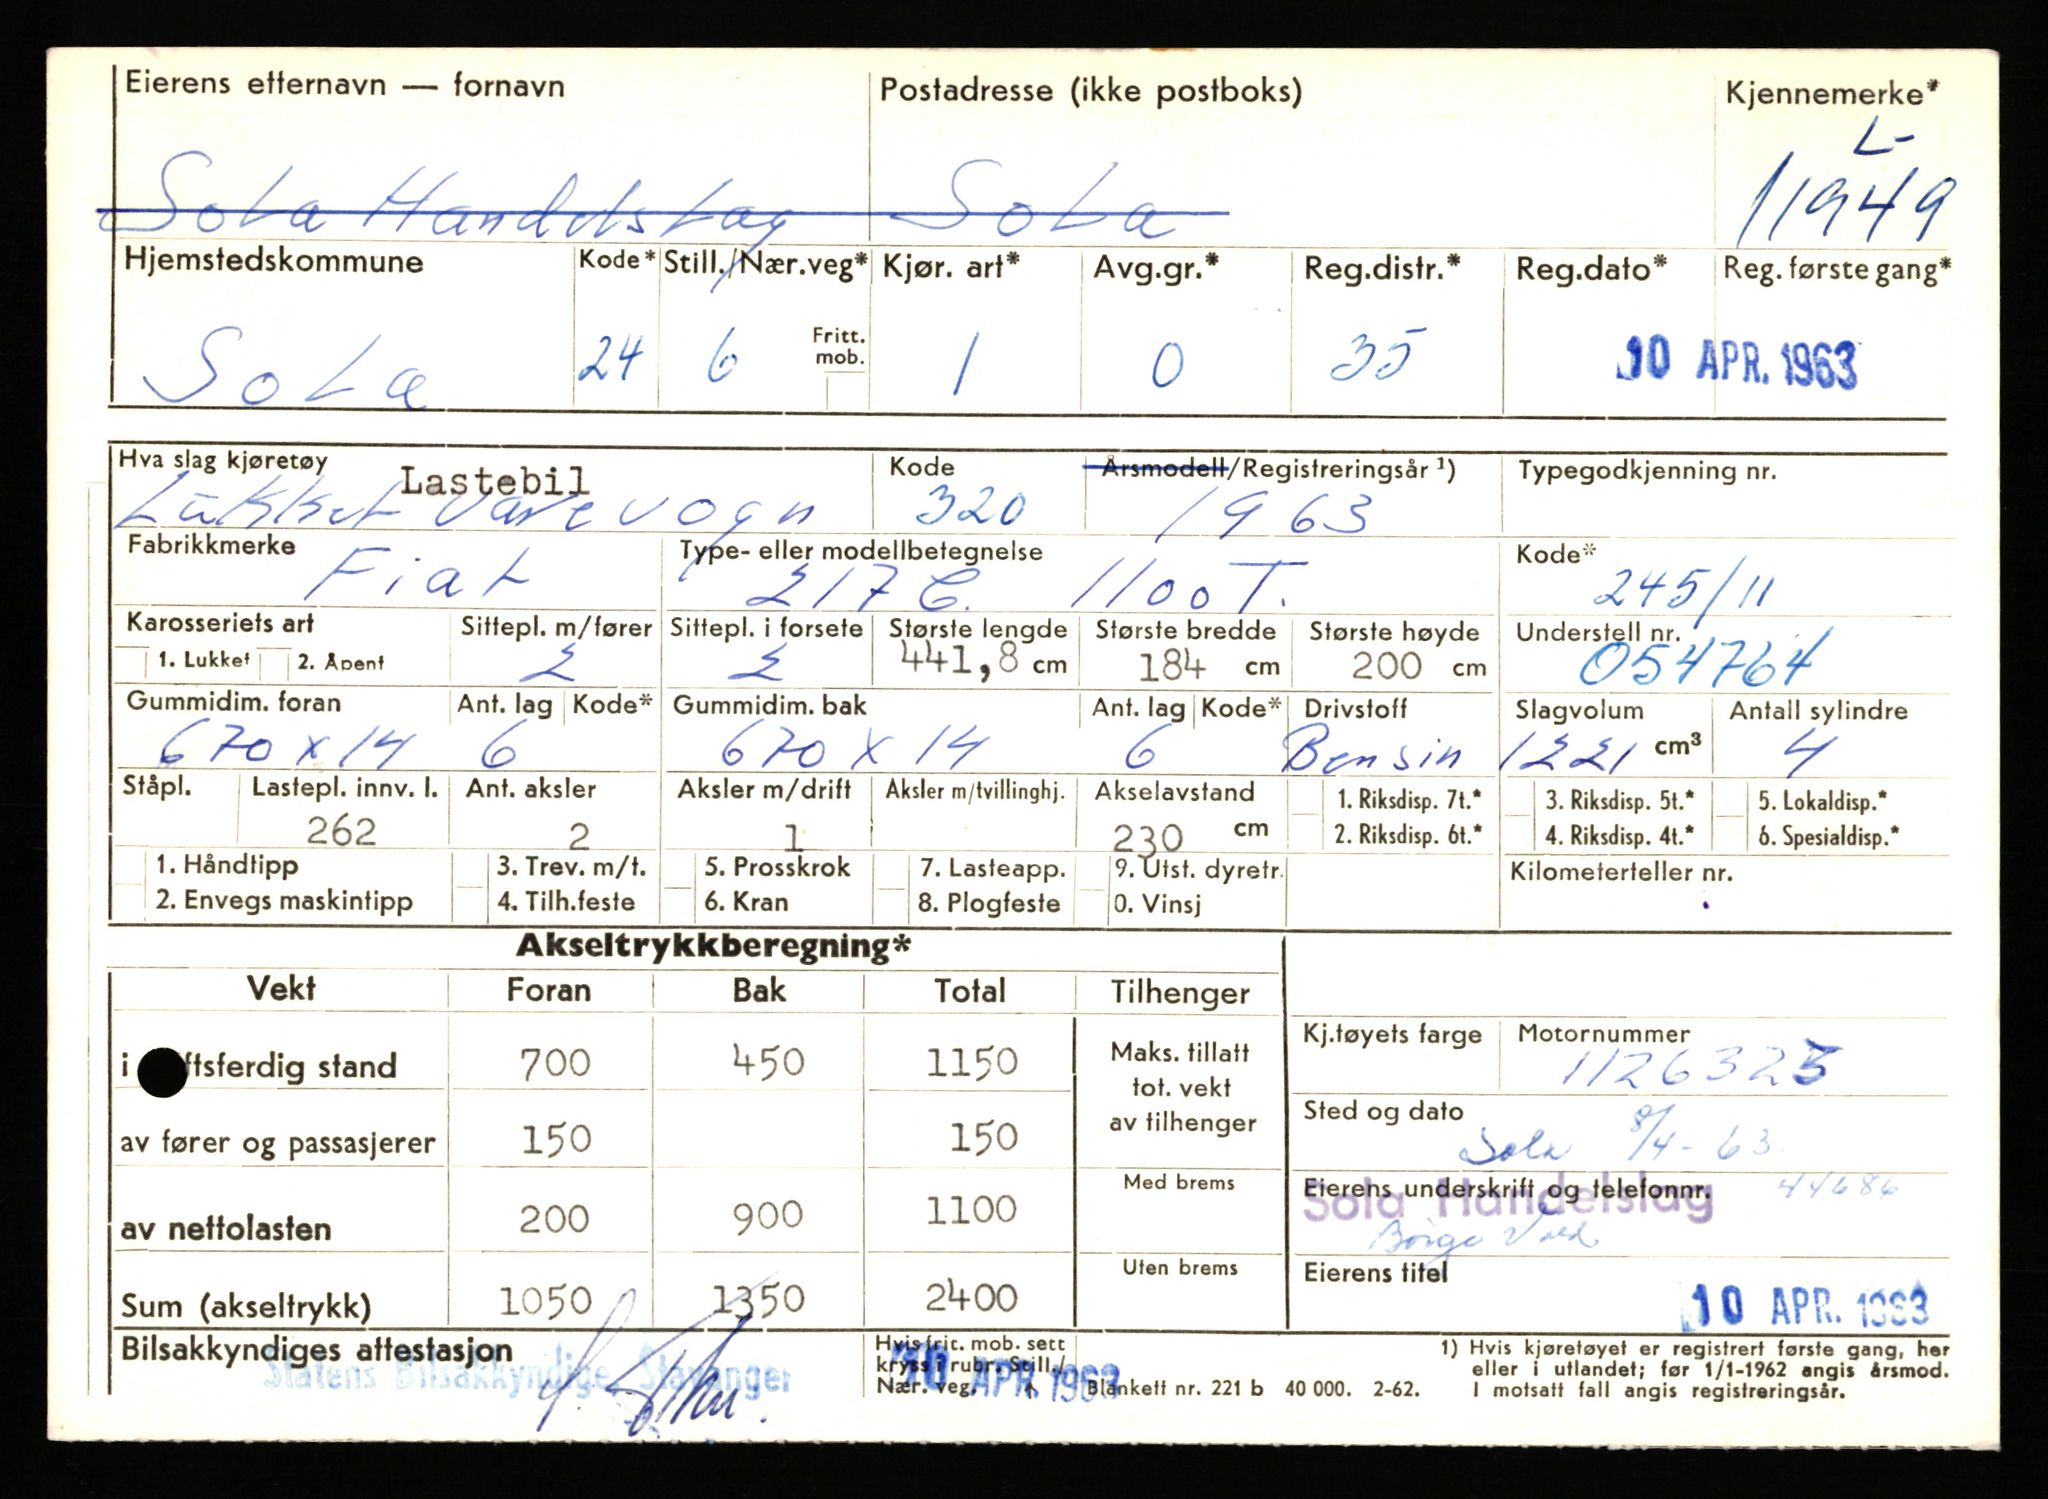 Eierens etternavn — fornavn Postadresse (ikke postboks) Kjennemerke*
L-
Sola Handelslag Sola 11949
Hjemstedskommune Kode* Still./Nær.veg* Kjør. art* Avg.gr.* Reg.distr.* Reg.dato* Reg. første gang*
Fritt. mob.
Sola 24 6 1 0 35 10 APR. 1963
Hva slag kjøretøy Kode Årsmodell/Registreringsår ¹) Typegodkjenning nr.
Lastebil
Lukket varevogn 320 1963
Fabrikkmerke Type- eller modellbetegnelse Kode*
Fiat 217 C. 1100 T. 245/11
Karosseriets art Sittepl. m/fører Sittepl. i forsete Største lengde Største bredde Største høyde Understell nr.
1. Lukket 2. Åpent 2 2 441,8 cm 184 cm 200 cm 054764
Gummidim. foran Ant. lag Kode* Gummidim. bak Ant. lag Kode* Drivstoff Slagvolum Antall sylindre
670 x 14 6 670 x 14 6 Bensin 1221 cm³ 4
Ståpl. Lastepl. innv. l. Ant. aksler Aksler m/drift Aksler m/tvillinghj. Akselavstand 1. Riksdisp. 7t.* 3. Riksdisp. 5t.* 5. Lokaldisp.*
262 2 1 230 cm 2. Riksdisp. 6t.* 4. Riksdisp. 4t.* 6. Spesialdisp.*
1. Håndtipp 3. Trev. m/t. 5. Prosskrok 7. Lasteapp. 9. Utst. dyretr. Kilometerteller nr.
2. Envegs maskintipp 4. Tilh.feste 6. Kran 8. Plogfeste 0. Vinsj
Akseltrykkberegning*
Vekt Foran Bak Total Tilhenger
Kj.tøyets farge Motornummer
i ftsferdig stand 700 450 1150 Maks. tillatt tot. vekt av tilhenger 1126325
Sted og dato
av fører og passasjerer 150 150 Sola 8/4-63
Med brems Eierens underskrift og telefonnr. 44686
Sola Handelslag
av nettolasten 200 900 1100 Børge Vold
Uten brems Eierens titel
Sum (akseltrykk) 1050 1350 2400 10 APR. 1963
Bilsakkyndiges attestasjon
Statens Bilsakkyndige Stavanger
Hvis frit. mob. sett
kryss i rubr. Still./
Nær. veg. ↑
10 APR. 1963
Blankett nr. 221 b 40 000. 2-62.
1) Hvis kjøretøyet er registrert første gang, her
eller i utlandet; før 1/1-1962 angis årsmod.
I motsatt fall angis registreringsår.